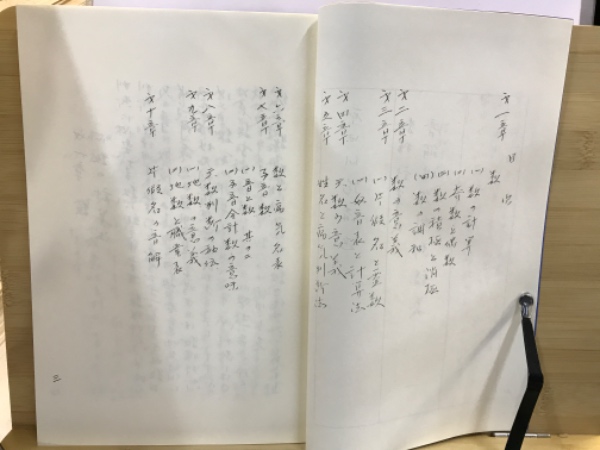 目次
第一章 数
(一)数の計算
(二)奇数と偶数
(三)数の積極と消極
(四)数の調和
第二章 数の意義
第三章
(一)片仮名と画数
(二)五十音表と計算法
第四章 天数の意義
第五章 姓名と病気判断法
第六章 数と病気名表
第七章 子音数
(一)音と数 其の二
(二)子音合計数の意味
第八章 天数判断の秘伝
第九章
(一)地数の意義
(二)地数と職業表
第十章 片仮名の音解
三